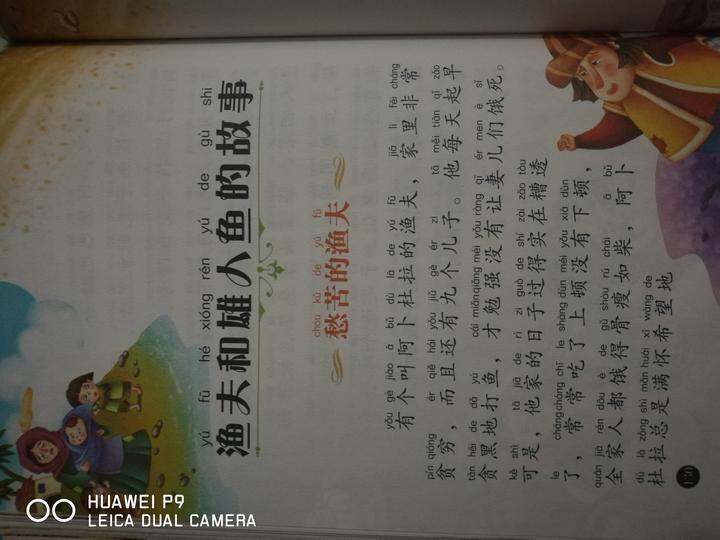 yú fū hé xióng rén yú de gù shi
渔夫和雄人鱼的故事
chóu kǔ de yú fū
愁苦的渔夫
yǒu gè jiào ā bǔ dù lā de yú fū jiā lǐ fēi cháng
有个叫阿卜杜拉的渔夫，家里非常
pín qióng ér qiě hái yǒu jiǔ gè ér zi tā měi tiān qǐ zǎo
贫穷，而且还有九个儿子。他每天起早
tān hēi de dǎ yú cái miǎnqiǎng méi yǒu ràng qī ér men è sǐ
贪黑地打鱼，才勉强没有让妻儿们饿死。
kě shì tā jiā de rì zi guò de shí zài zāo tòu
可是，他家的日子过得实在糟透
le chángcháng chī le shàng dùn méi yǒu xià dùn
了，常常吃了上顿没有下顿，
quán jiā rén dōu è de gǔ shòu rú chái ā bǔ
全家人都饿得骨瘦如柴，阿卜
dù lā zǒng shì mǎn huái xī wàng de
杜拉总是满怀希望地
130
HUAWEI P9
LEICA DUAL CAMERA